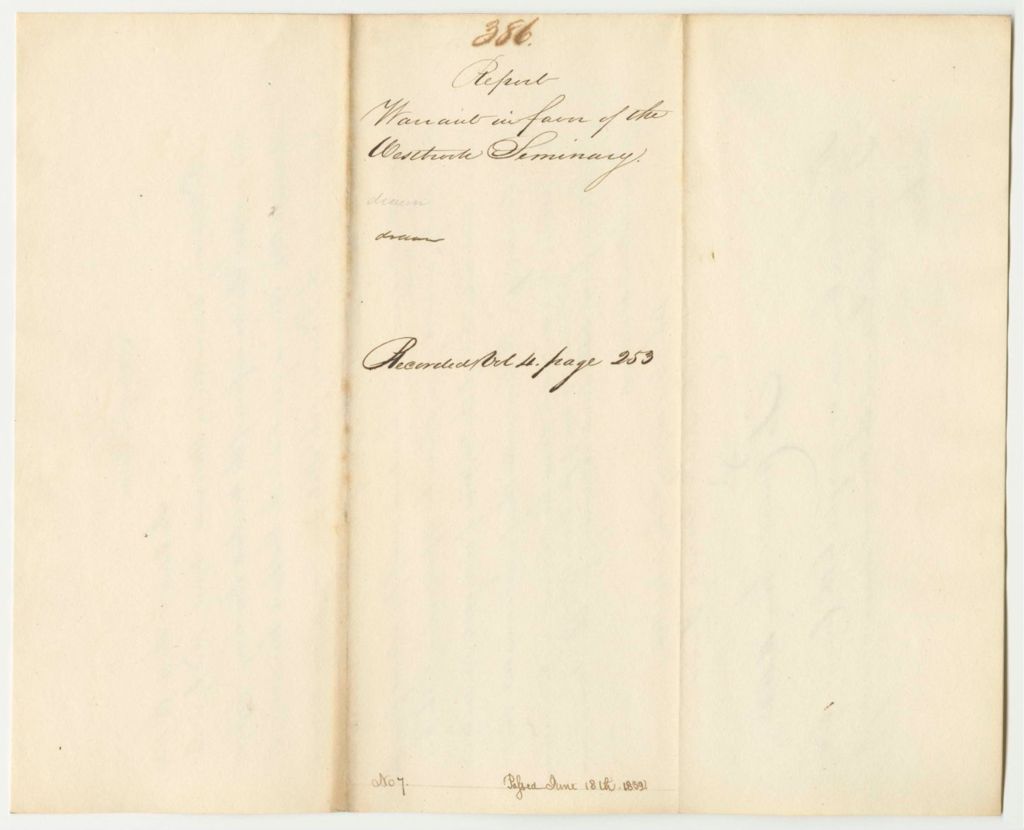 386.
Report
Warrant in favor of the
Westbrook Seminary.
drawn
drawn
Recorded Vol 4. page 253
No 7.
Passed June 18th 1839